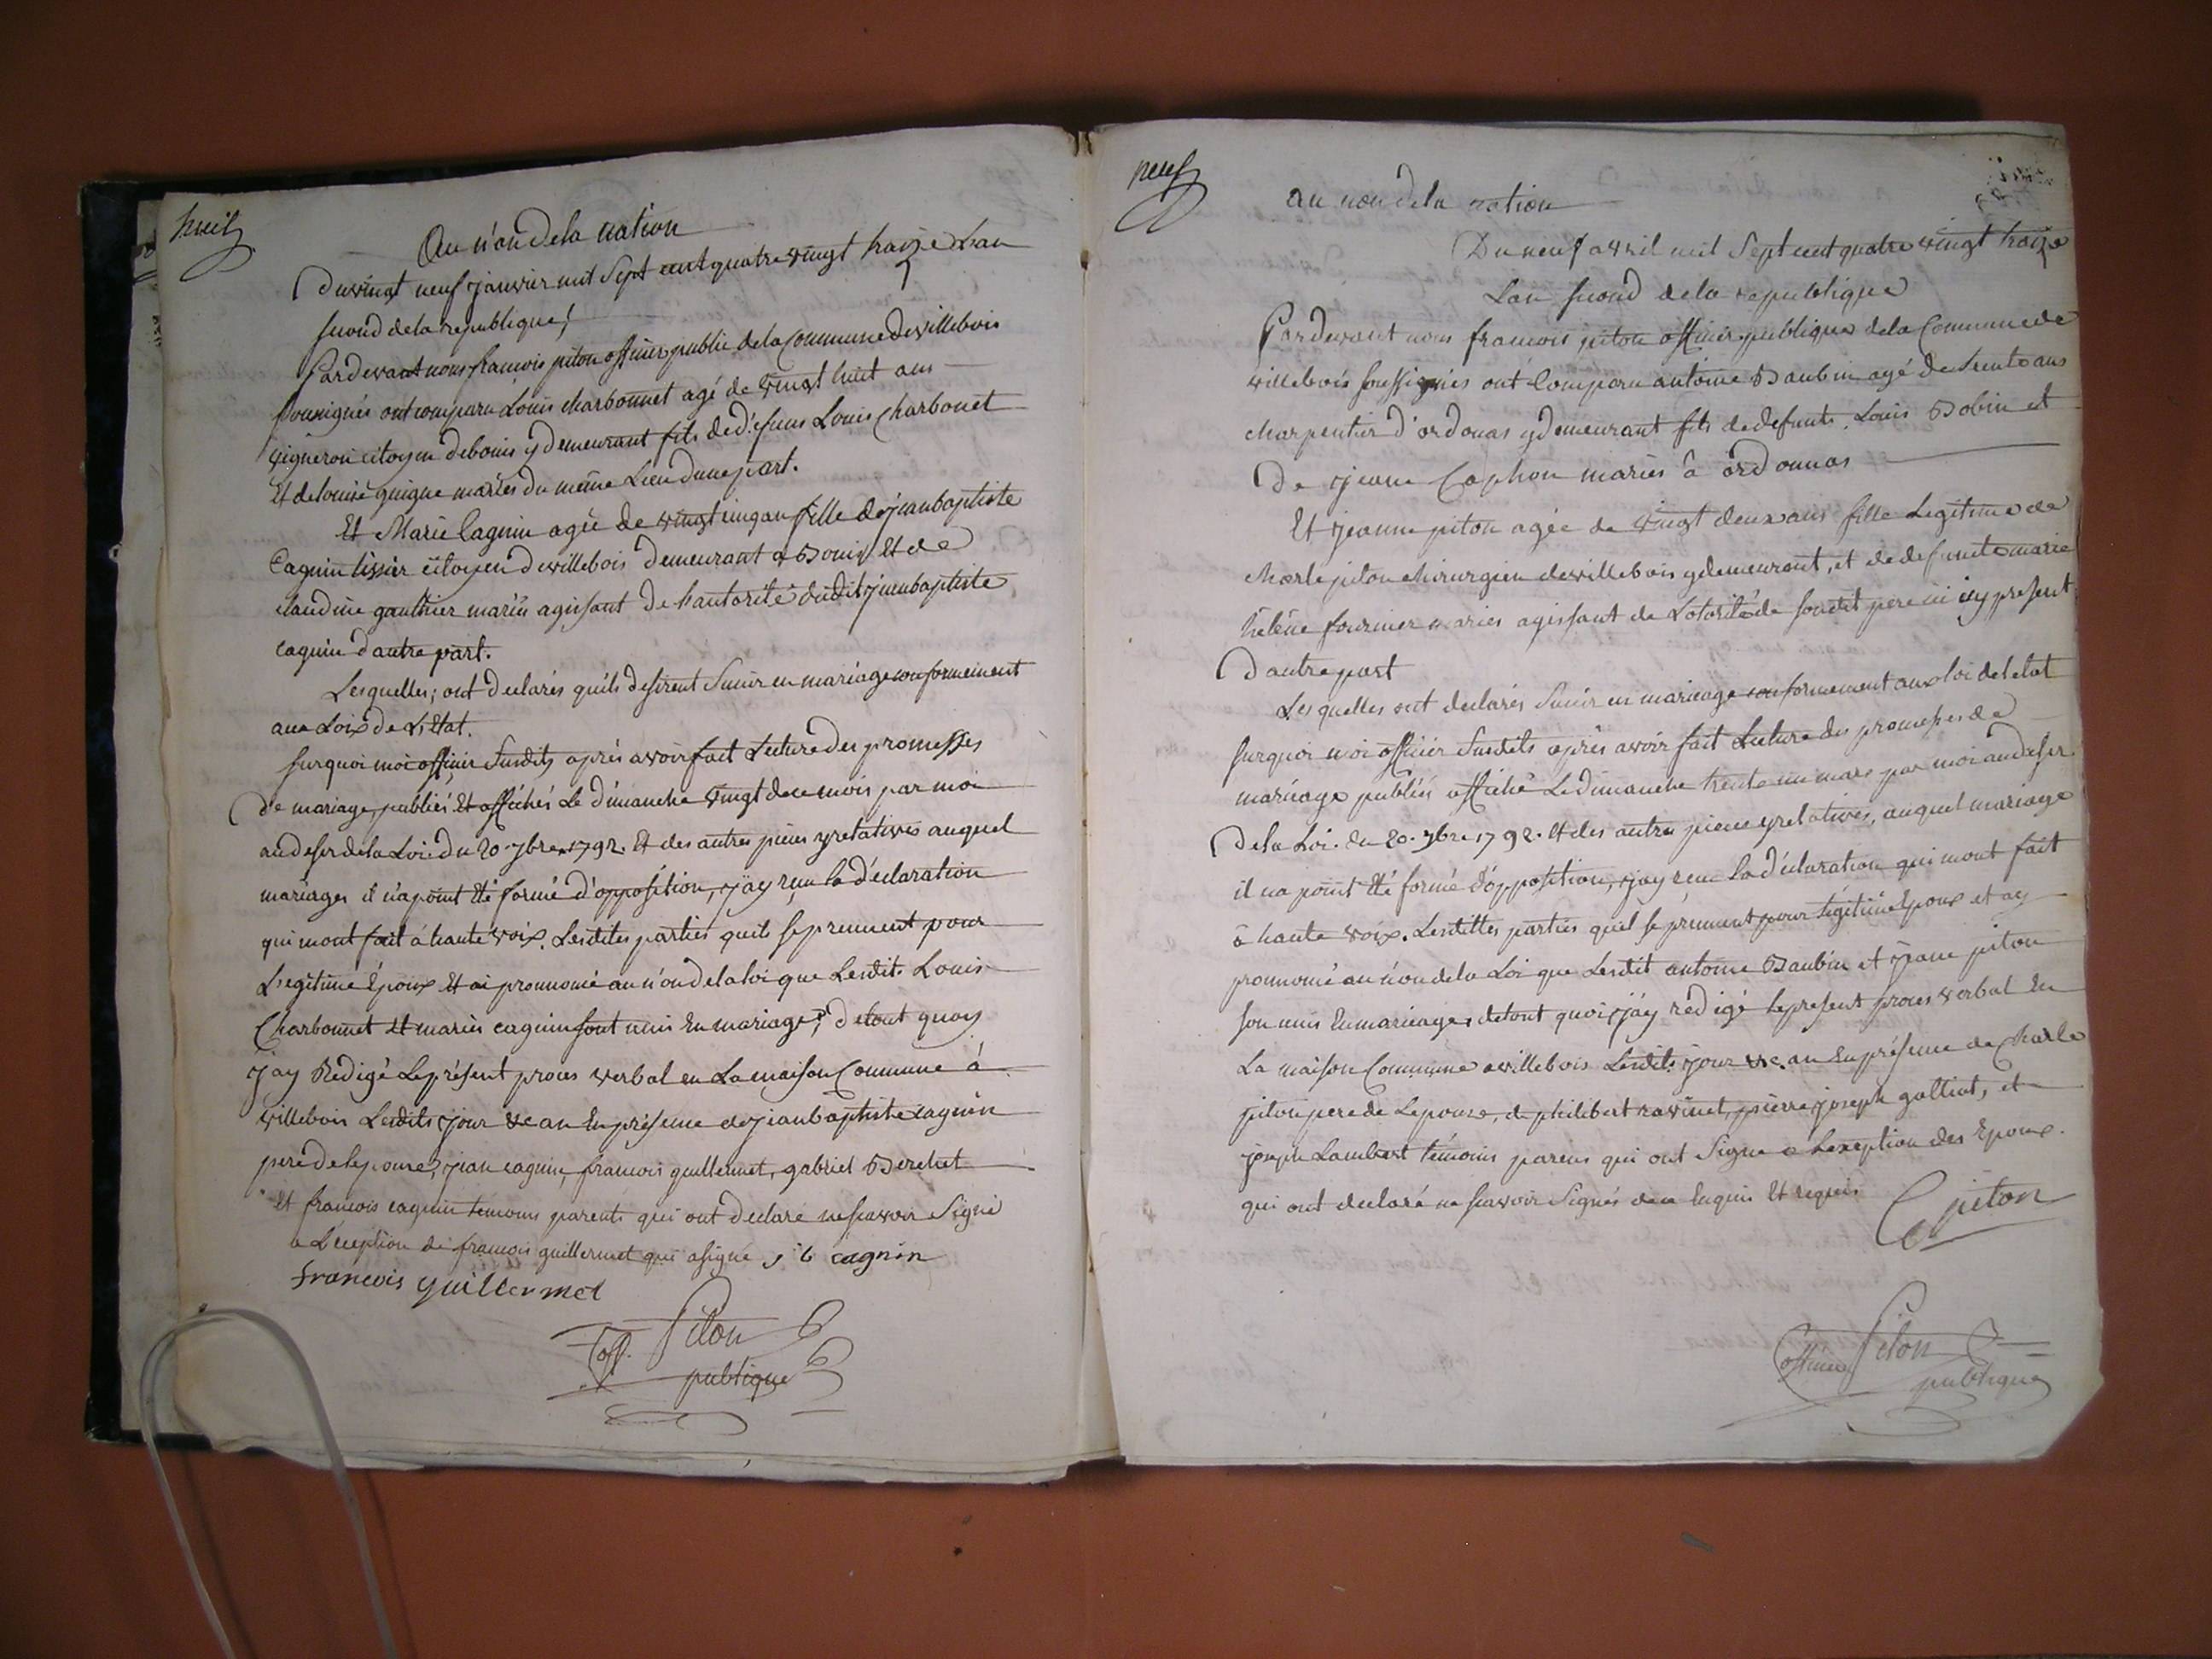 huit
Au n'on dela nation
Du vingt neuf janvier mil Sept cent quatre vingt traize Lan
second de la republique,
Pardevant nous francois piton officier public de la Commune de villebois
sousignés ont comparu Louis charbonnet agé de vingt huit ans
vigneron citoyen de bouis y demeurant fils de défuns Louis Charbonet
Et de louise guigue mariés du même Lieu dune part.
Et Marie Cagnin agée de vingt cinq an fille de jeanbaptiste
Cagnin tissier citoyen de villebois demeurant a Bouis Et de
claudine gauthier mariés agissant de Lautorité dudit jeanbaptiste
cagnin dautre part.
Lesquelles, ont declarés quils desirent Sunir en mariage conformement
aux Loix de L'Etat.
Surquoi moi officier Susdits aprés avoir fait Lecture des promesses
de mariage, publiés Et affichés Le dimanche vingt du ce mois par moi
au desir de la Loi du 20. 7bre 1792. Et des autres pieces y relatives auquel
mariages il n'a point été formé d'opposition, j'ay reçu la déclaration
qui mont fait à haute voix. Lesdites parties quils se prennent pour
Legitime Epoux Et ai prononcé au n'on de la loi que Lesdits Louis
Charbonnet Et mariés cagnin sont unis En mariage, de tout quoy
jay Redigé Le présent proces verbal en La maison Commune à
villebois Lesdits jour & an En présence de jeanbaptiste cagnin
pere de lepouse, jean cagnin, francois guillermet, gabriel Berchet
et francois cagnin temoins parents qui ont declaré ne scavoir Signé
a L'éxeption de francois guillermet qui a signé j b cagnin
francois guillermet
Piton
off.
publique
neuf
au non dela nation
Du neuf avril mil Sept cent quatre vingt traize
Lan second de la republique
Pardevant nous francois piton officier publique de la Commune de
villebois soussignés ont Comparu antoine Baubin agé de trente ans
charpentier d'ordonas y demeurant fils de defunts Louis Bobin et
De jeane Caphon mariés à ordonnas
Et jeanne piton agée de vingt deux ans fille Legitime de
charle piton chirurgien de villebois y demeurant, et de defuncte marie
hélène fournier mariés agissant de Lotorité de son dit pere ici present
Dautre part
Lesquelles ont declarés Sunir en mariage conformement aux loi de letat
surquoi moi officier Susdits aprés avoir fait Lecture des promesses de
mariage publiés affiché Le dimanche trente un mars par moi au desir
De la Loi. du 20. 7bre 1792. Et des autres pieces y relatives, auquel mariage
il na point été formé d'opposition, jay reçu la déclaration qui mont fait
à haute voix. Lesdittes parties quil se prennent pour légitime Epoux et ay
prononcé au n'on de la Loi que Lesdit antoine Baubin et jeane piton
son unis En mariage, de tout quoi, j'ay rédigé le présent proces verbal En
La maison Commune a villebois Lesdits jour & an En présence de Charle
piton pere de Lepouse, de philibert ravinet, pierre joseph galliot, et
joseph Lambert témoins parens qui ont Signé a Lexeption des Epoux.
qui ont declaré ne scavoir Signés de ce Enquis Et requis
C piton
Piton
officier publique